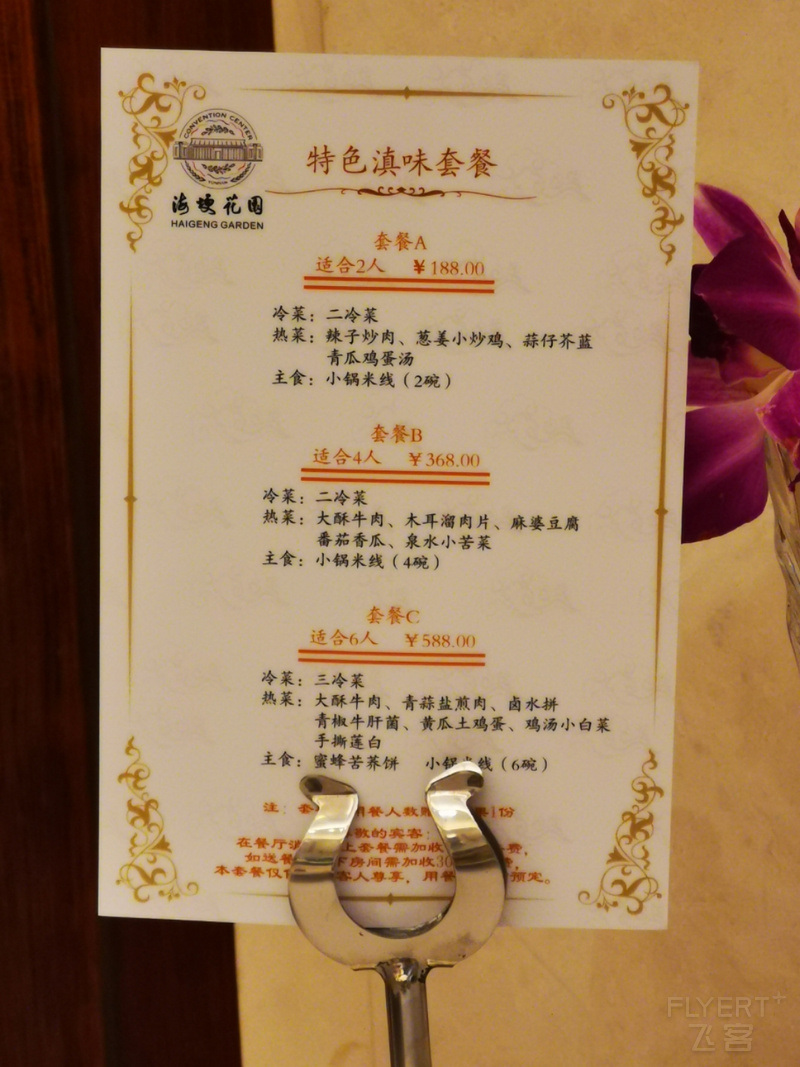 CONVENTION CENTER
海埂花园
HAIGENG GARDEN
特色滇味套餐
套餐A
适合2人 ￥188.00
冷菜：二冷菜
热菜：辣子炒肉、葱姜小炒鸡、蒜仔芥蓝
青瓜鸡蛋汤
主食：小锅米线（2碗）
套餐B
适合4人 ￥368.00
冷菜：二冷菜
热菜：大酥牛肉、木耳溜肉片、麻婆豆腐
番茄香瓜、泉水小苦菜
主食：小锅米线（4碗）
套餐C
适合6人 ￥588.00
冷菜：三冷菜
热菜：大酥牛肉、青蒜盐煎肉、卤水拼
青椒牛肝菌、黄瓜土鸡蛋、鸡汤小白菜
手撕莲白
主食：蜜蜂苦荞饼 小锅米线（6碗）
注：套 用餐人数 1份
敬的宾客：
在餐厅 上套餐需加收 费，
如送餐 下房间需加收30
本套餐仅 客人尊享，用餐 预定。
FLYERT+
飞客